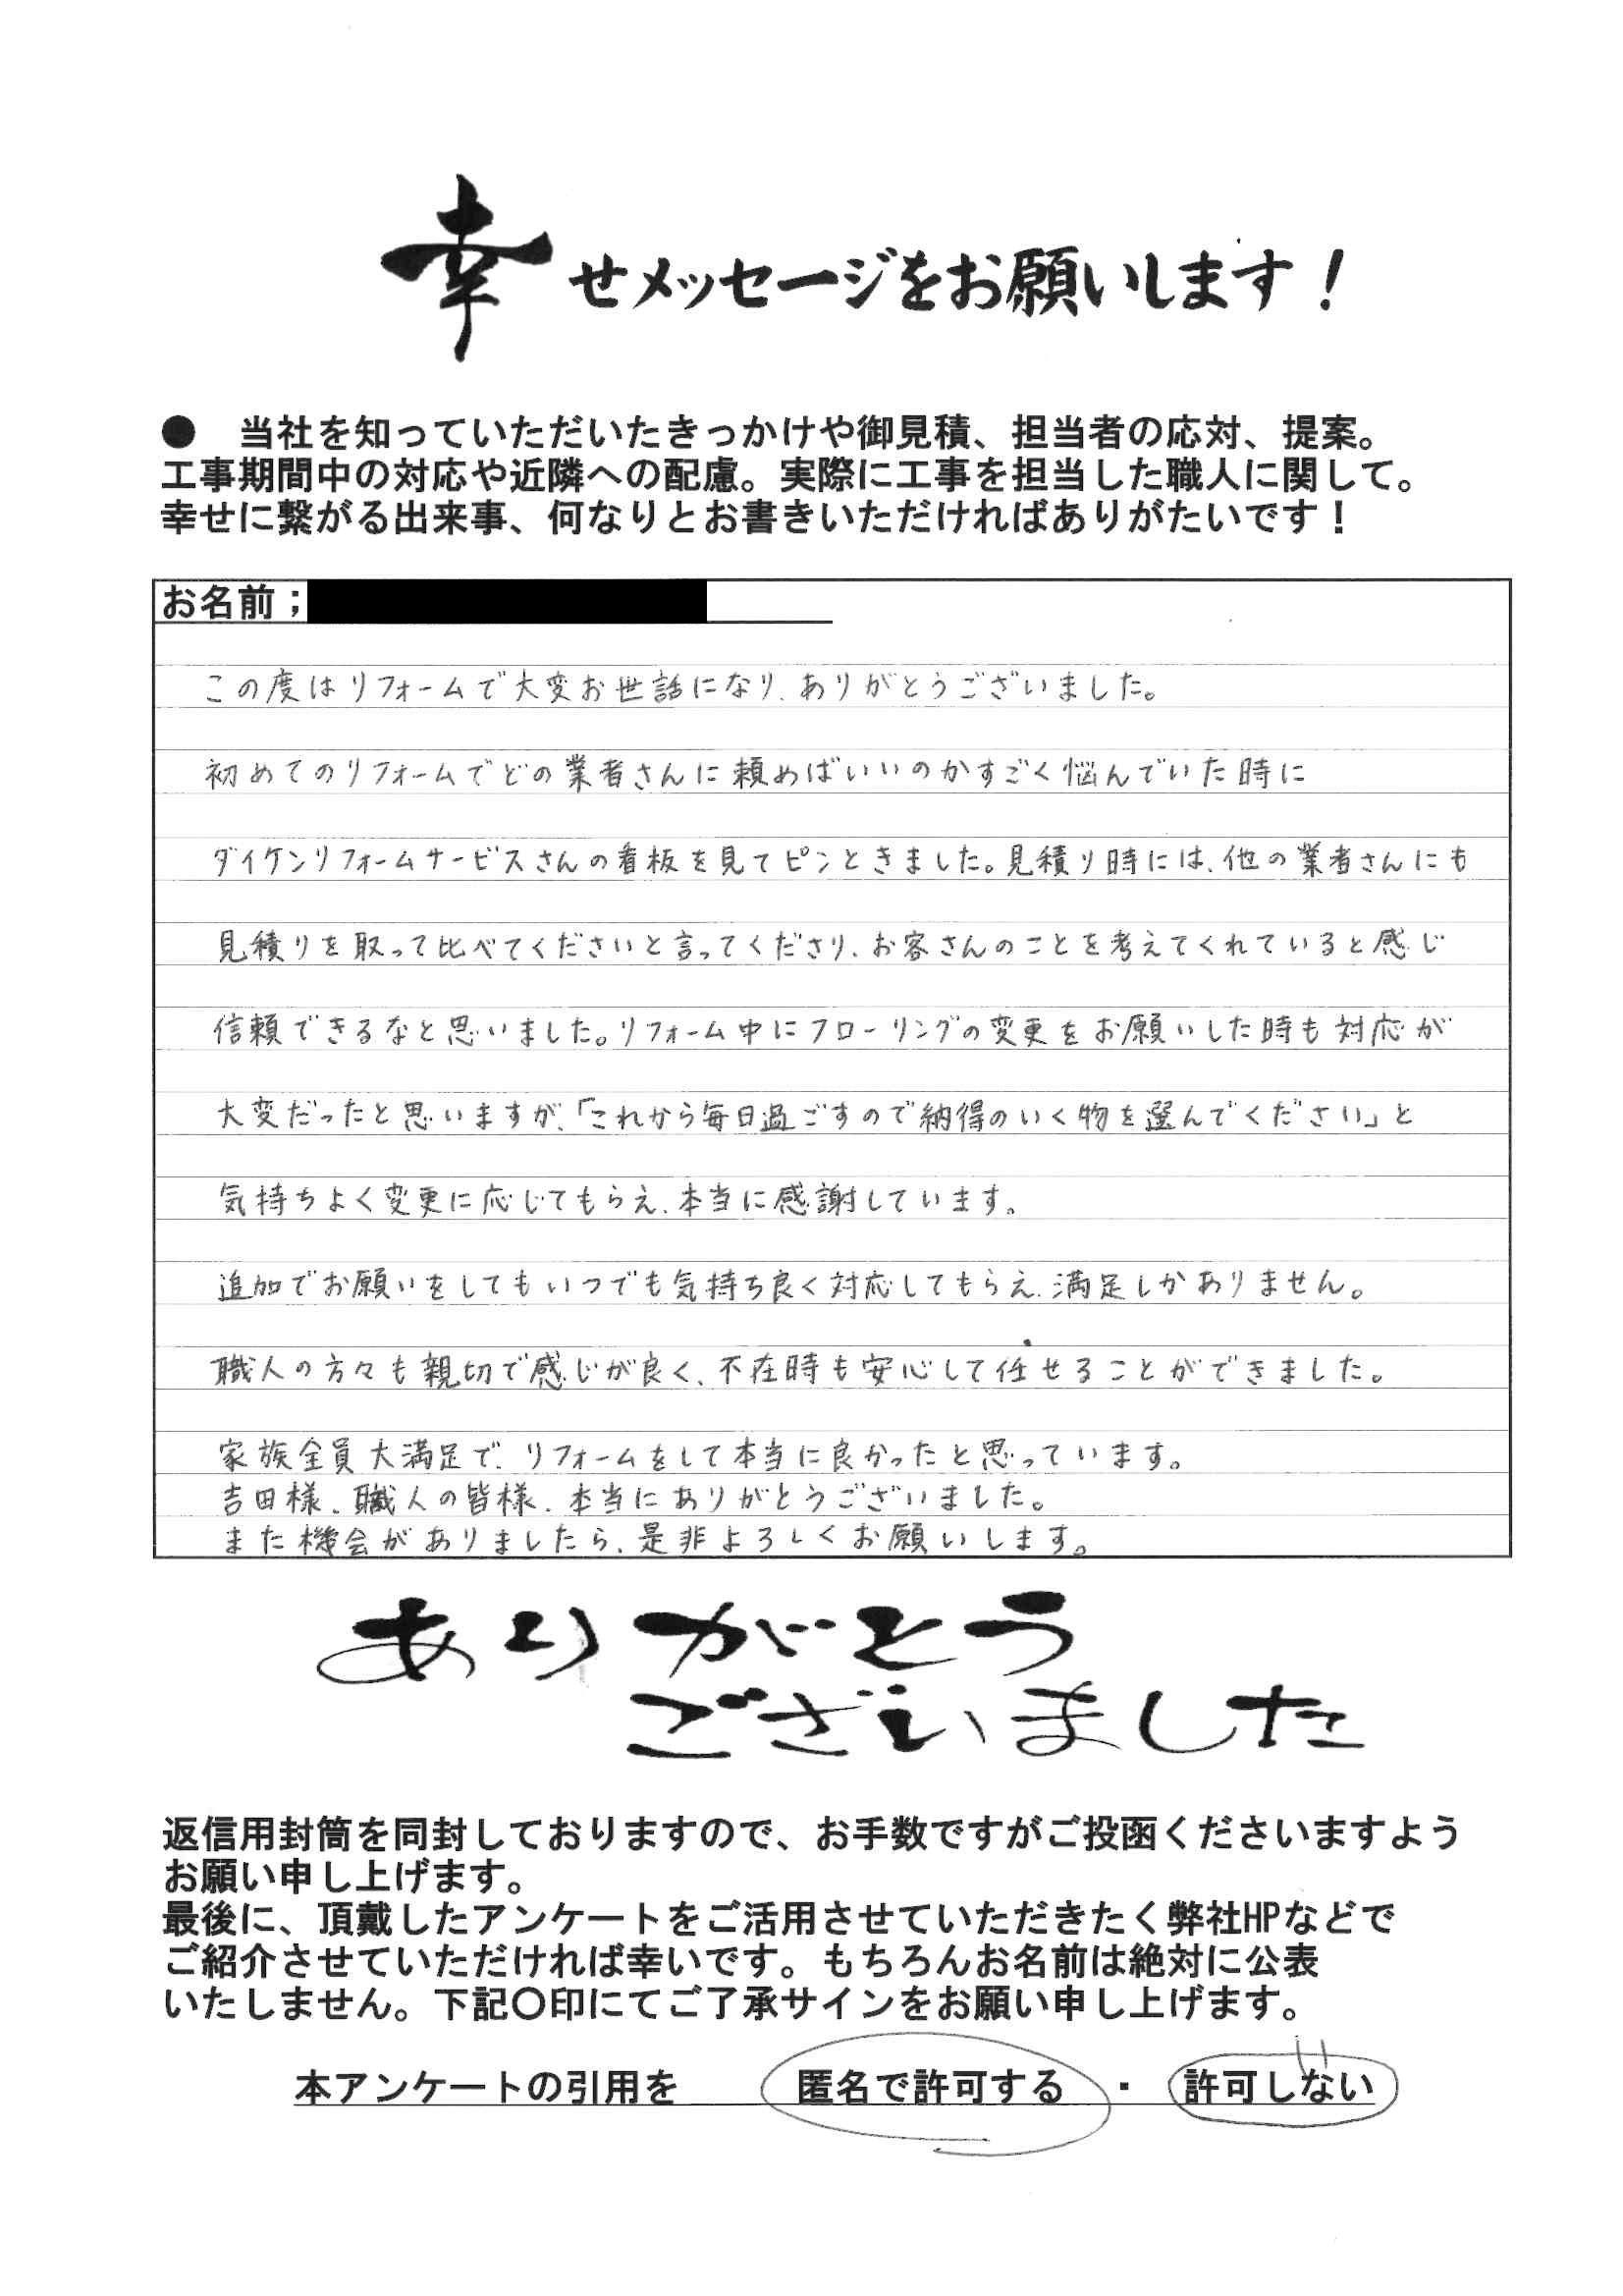 幸せメッセージをお願いします!
● 当社を知っていただいたきっかけや御見積、担当者の応対、提案。
工事期間中の対応や近隣への配慮。実際に工事を担当した職人に関して。
幸せに繋がる出来事、何なりとお書きいただければありがたいです!
お名前;
この度はリフォームで大変お世話になり、ありがとうございました。
初めてのリフォームでどの業者さんに頼めばいいのかすごく悩んでいた時に
ダイケンリフォームサービスさんの看板を見てピンときました。見積り時には、他の業者さんにも
見積りを取って比べてくださいと言ってくださり、お客さんのことを考えてくれていると感じ
信頼できるなと思いました。リフォーム中にフローリングの変更をお願いした時も対応が
大変だったと思いますが、「これから毎日過ごすので納得のいく物を選んでください」と
気持ちよく変更に応じてもらえ、本当に感謝しています。
追加でお願いをしてもいつでも気持ち良く対応してもらえ、満足しかありません。
職人の方々も親切で感じが良く、不在時も安心して任せることができました。
家族全員大満足で、リフォームをして本当に良かったと思っています。
吉田様、職人の皆様、本当にありがとうございました。
また機会がありましたら、是非よろしくお願いします。
ありがとう
ございました
返信用封筒を同封しておりますので、お手数ですがご投函くださいますよう
お願い申し上げます。
最後に、頂戴したアンケートをご活用させていただきたく弊社HPなどで
ご紹介させていただければ幸いです。もちろんお名前は絶対に公表
いたしません。下記〇印にてご了承サインをお願い申し上げます。
本アンケートの引用を 匿名で許可する ・ 許可しない